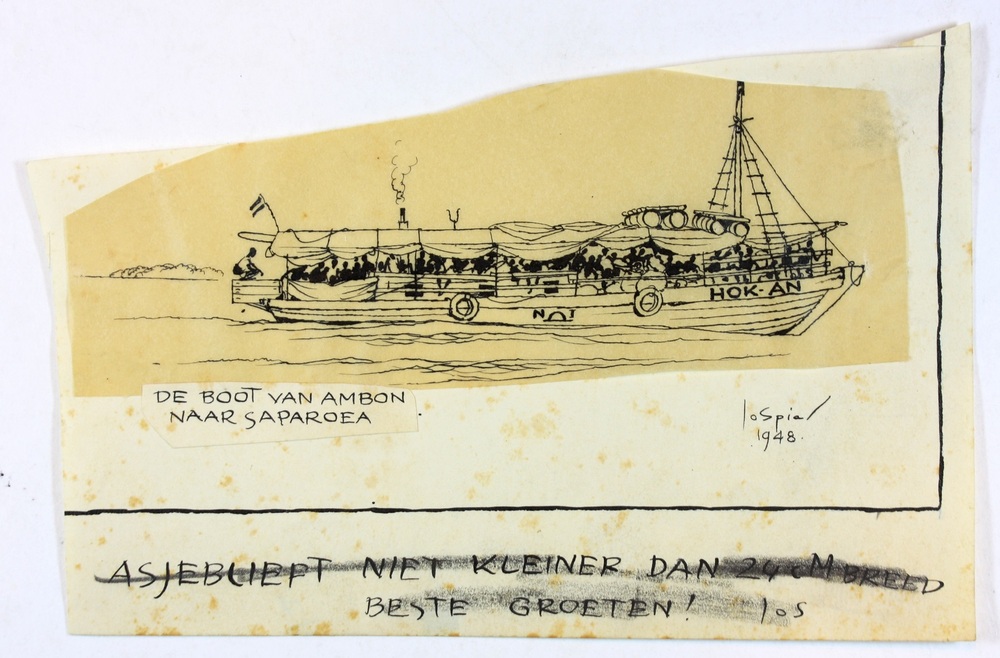 HOK·AN
NOT
DE BOOT VAN AMBON
NAAR SAPAROEA
JoSpier
1948.
ASJEBLIEFT NIET KLEINER DAN 24 cM BREED
BESTE GROETEN! Jos